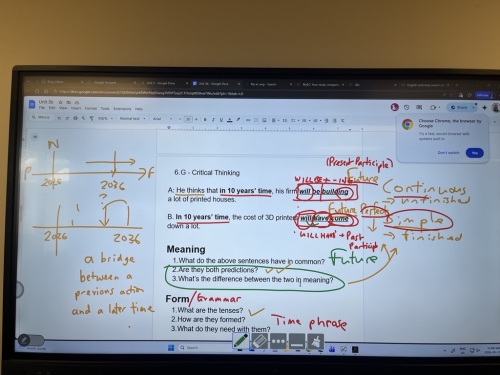 Unit 5b
File Edit View Insert Format Tools Extensions Help
Share
Choose Chrome, the browser by Google
Don't Yes
N
P F
2026 2036
?
2026 2036
a bridge
between a
previous action
and a later time
.
6.G - Critical Thinking
(Present Participle)
Future
A: He thinks that in 10 years' time, his fir will be building
a lot of printed houses.
Continuous
→ unfinished
Future Perfect
B. In 10 years' time, the cost of 3D printe will have come
down a lot.
Simple
→ finished
WILL HAVE + Past
Participle
Meaning
1.What do the above sentences have in common? Future
2.Are they both predictions?
3.What's the difference between the two in meaning?
Form/Grammar
1.What are the tenses?
2.How are they formed? Time phrase
3.What do they need with them?
Search